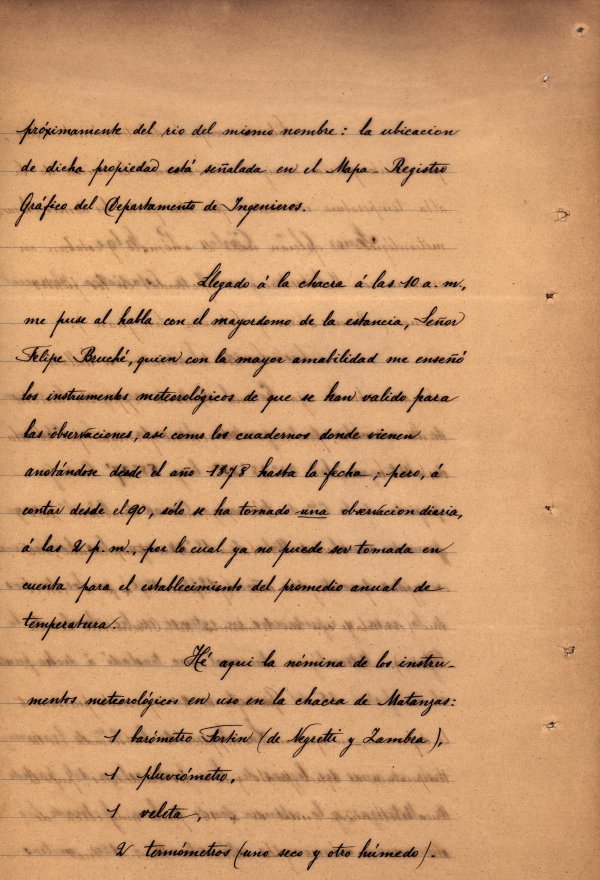 próximamente del rio del mismo nombre: la ubicacion
de dicha propiedad está señalada en el Mapa-Registro
Gráfico del Departamento de Ingenieros.
Llegado á la chacra á las 10 a. m.,
me puse al habla con el mayordomo de la estancia, Señor
Felipe Bruché, quien con la mayor amabilidad me enseñó
los instrumentos meteorológicos de que se han valido para
las observaciones, así como los cuadernos donde vienen
anotándose desde el año 1878 hasta la fecha; pero, á
contar desde el 90, sólo se ha tomado una observacion diaria,
á las 2 p. m., por lo cual ya no puede ser tomada en
cuenta para el establecimiento del promedio anual de
temperatura.
Hé aqui la nómina de los instru-
mentos meteorológicos en uso en la chacra de Matanzas:
1 barómetro Fortin (de Negretti y Zambra),
1 pluviómetro,
1 veleta,
2 termómetros (uno seco y otro húmedo).